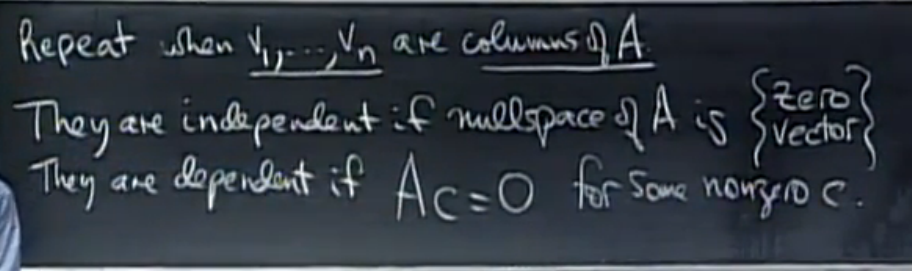 Repeat when v₁,...,vₙ are columns of A.
They are independent if nullspace of A is {zero vector}
They are dependent if Ac=0 for some nonzero c.